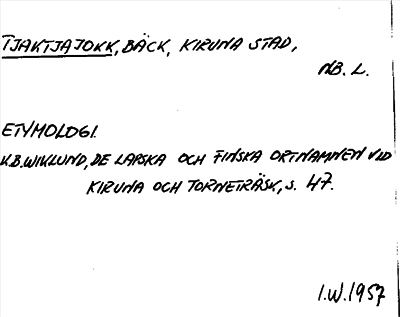 TJAKTJAJOKK, BÄCK, KIRUNA STAD,
NB. L.
ETYMOLOGI.
K.B. WIKLUND, DE LAPSKA OCH FINSKA ORTNAMNEN VID
KIRUNA OCH TORNETRÄSK, S. 47.
I.W. 1957